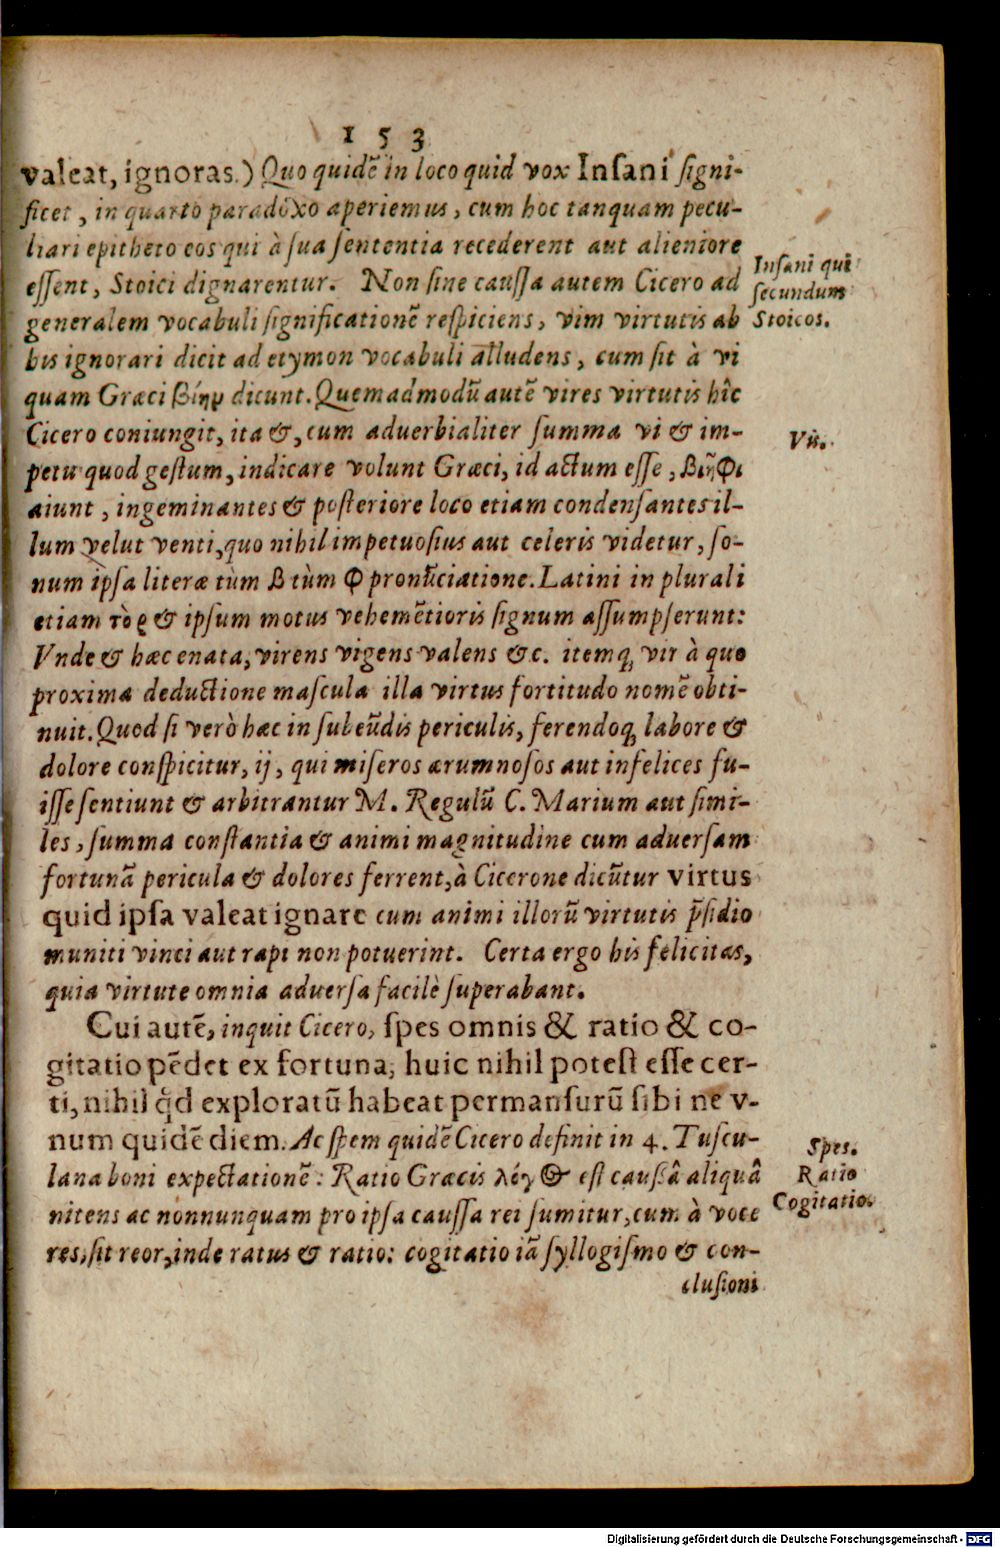 153
valeat, ignoras.) Quo quidē in loco quid vox Inſani ſigni-
ficet, in quarto paradoxo aperiemus, cum hoc tanquam pecu-
liari epitheto eos qui à ſua ſententia recederent aut alieniore
eſſent, Stoici dignarentur. Non ſine cauſſa autem Cicero ad
generalem vocabuli ſignificationē reſpiciens, vim virtutis ab
his ignorari dicit ad etymon vocabuli alludens, cum ſit à vi
quam Græci βίην dicunt. Quemadmodū autē vires virtutis hîc
Cicero coniungit, ita &, cum aduerbialiter ſumma vi & im-
petu quod geſtum, indicare volunt Græci, id actum eſſe, βιηφι
aiunt, ingeminantes & poſteriore loco etiam condenſantes il-
lum velut venti, quo nihil impetuoſius aut celeris videtur, ſo-
num ipſa literæ tùm β tùm φ pronūciatione. Latini in plurali
etiam τὸ ρ & ipſum motus vehemētioris ſignum aſſumpſerunt:
Vnde & hæc enata, virens vigens valens &c. itemq́; vir à quo
proxima deductione maſcula illa virtus fortitudo nomē obti-
nuit. Quod ſi verò hæc in ſubeūdis periculis, ferendoq́; labore &
dolore conſpicitur, ij, qui miſeros ærumnoſos aut infelices fu-
iſſe ſentiunt & arbitrantur M. Regulū C. Marium aut ſimi-
les, ſumma conſtantia & animi magnitudine cum aduerſam
fortunā pericula & dolores ferrent, à Cicerone dicūtur virtus
quid ipſa valeat ignare cum animi illorū virtutis p̄ſidio
muniti vinci aut rapi non potuerint. Certa ergo his felicitas,
quia virtute omnia aduerſa facilè ſuperabant.
Cui autē, inquit Cicero, ſpes omnis & ratio & co-
gitatio pēdet ex fortuna, huic nihil poteſt eſſe cer-
ti, nihil q̇d exploratū habeat permanſurū ſibi ne v-
num quidē diem. Ac ſpem quidē Cicero definit in 4. Tuſcu-
lana boni expectationē: Ratio Græcis λόγ⊕ eſt cauſsâ aliquâ
nitens ac nonnunquam pro ipſa cauſſa rei ſumitur, cum à voce
res, ſit reor, inde ratus & ratio: cogitatio iā ſyllogiſmo & con-
cluſioni
Inſani qui
ſecundum
Stoicos.
Vis.
Spes.
Ratio
Cogitatio.
Digitalisierung gefördert durch die Deutsche Forschungsgemeinschaft - DFG